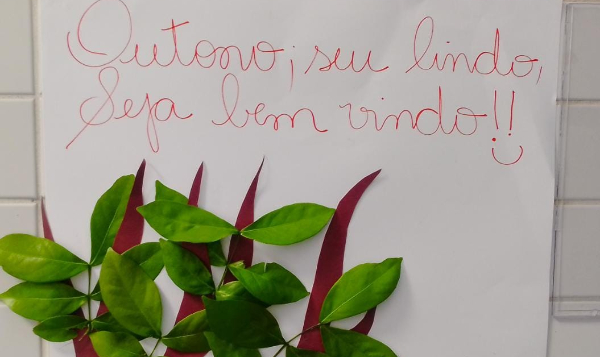 Outono, seu lindo,
Seja bem vindo!!